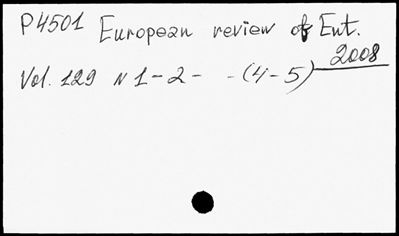 P4501 European review of Ent.
2008
Vol. 129 N 1-2- -(4-5)